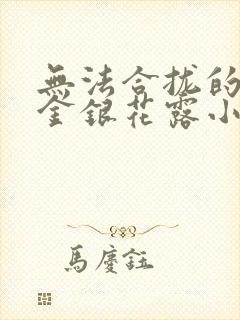 無法合拢的
金銀花露小
馬慶鈺